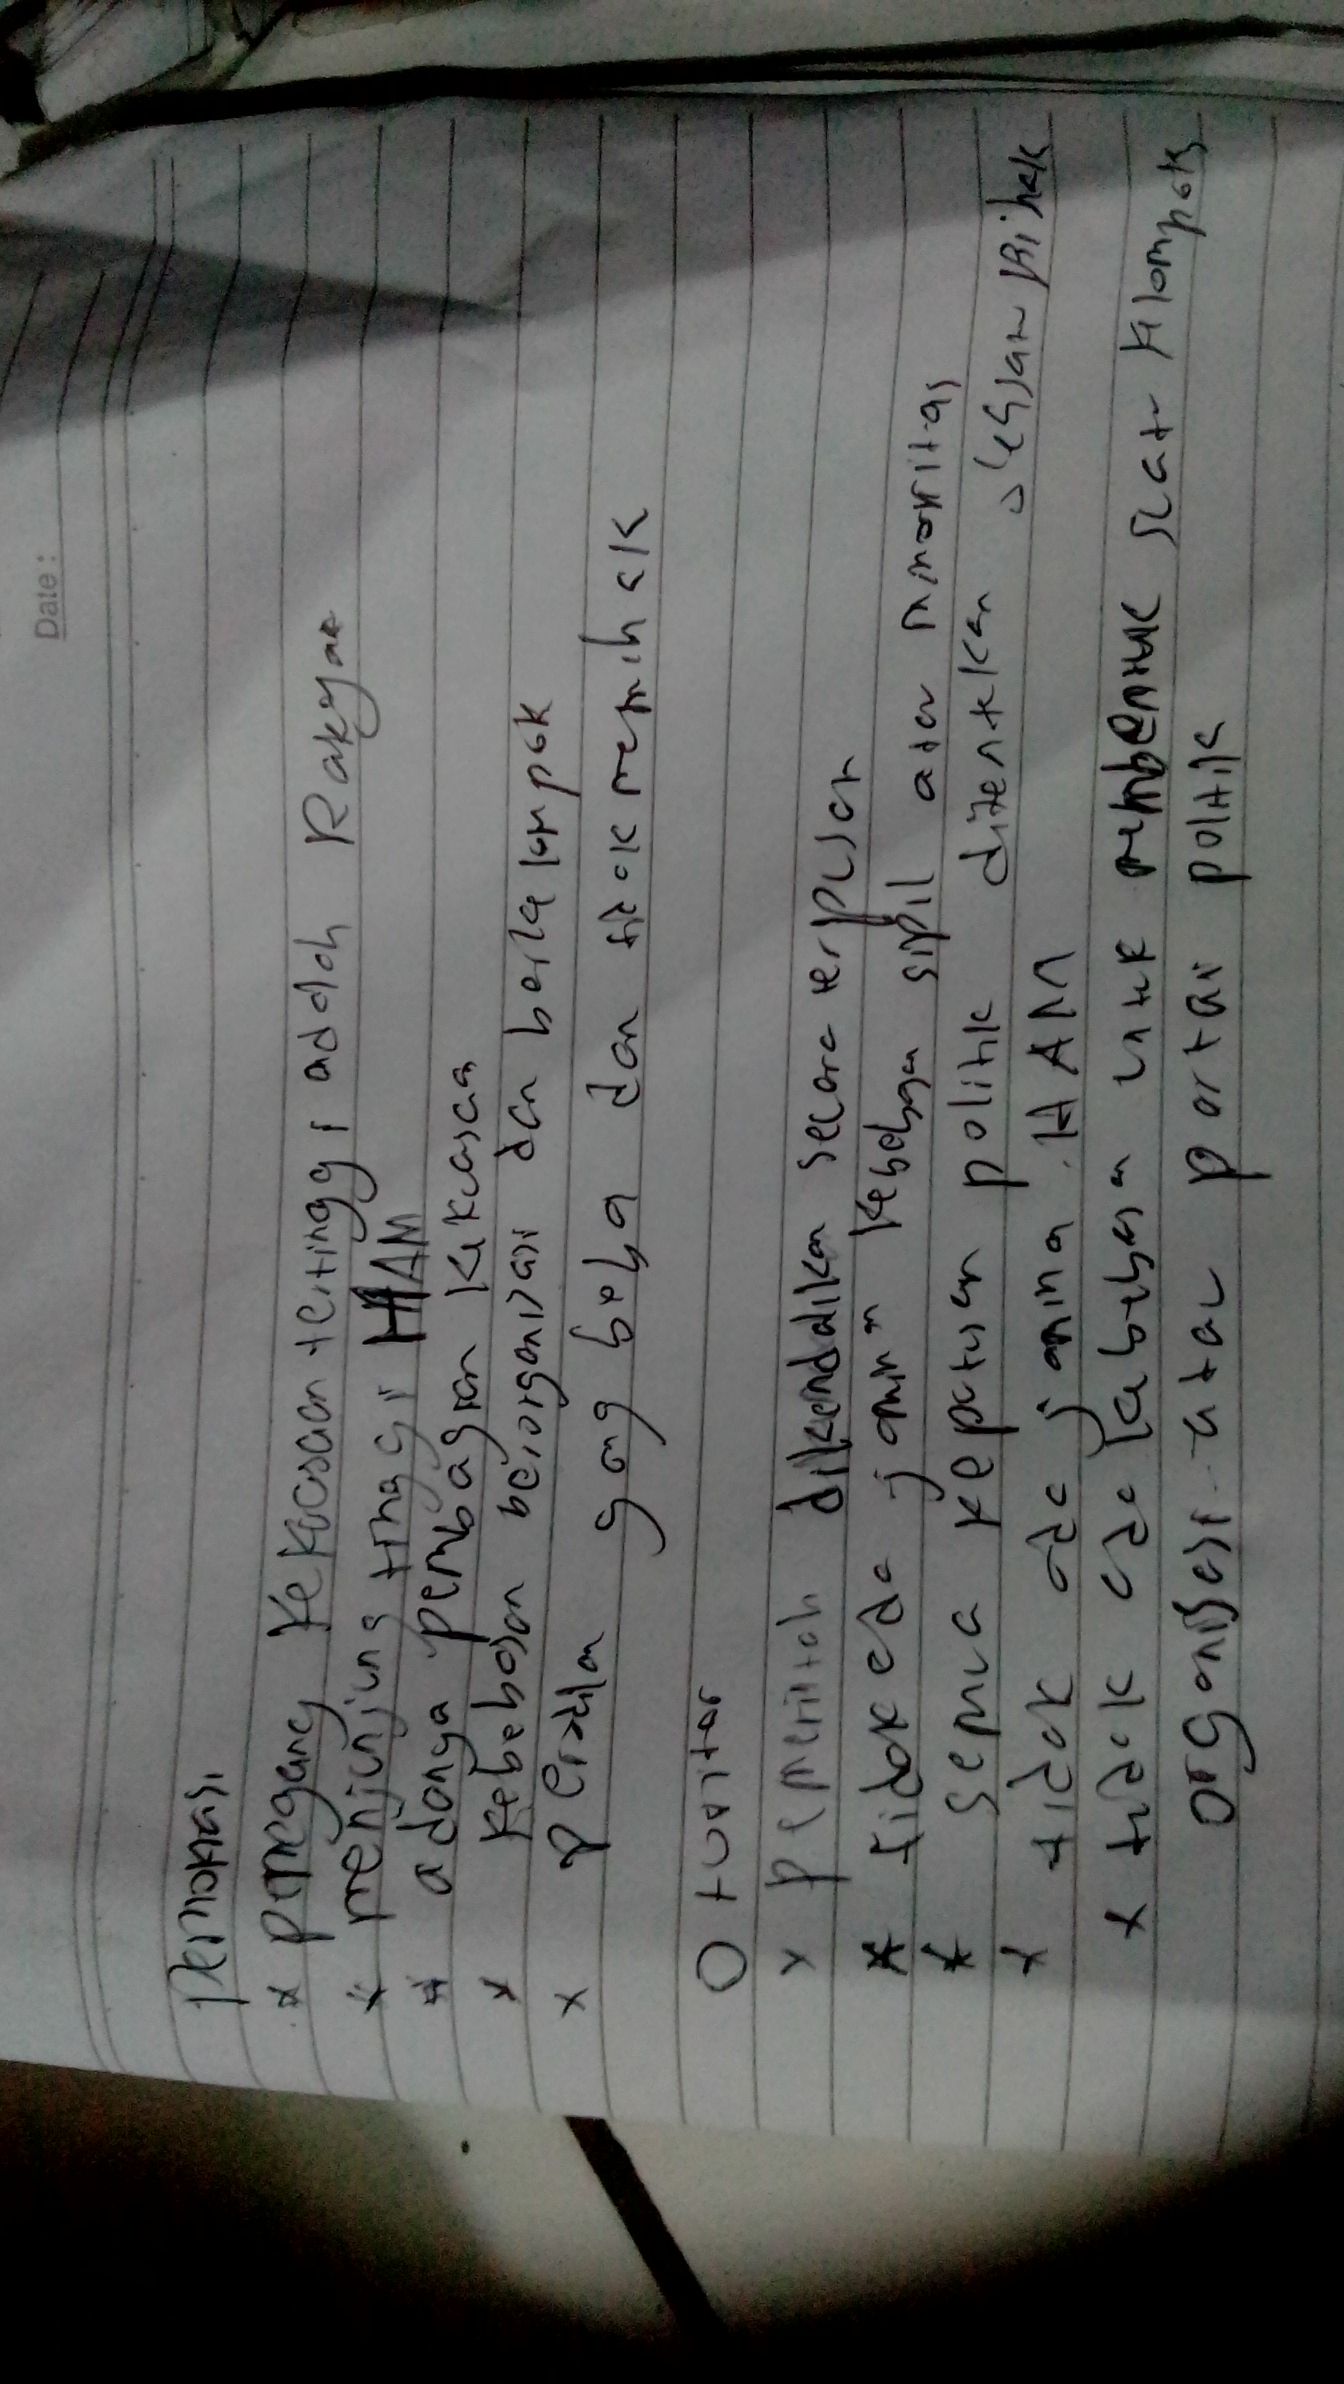 Date:
Demokrasi
* pemegang kekuasaan tertinggi adalah Rakyat
* menjunjung tinggi HAM
* adanya pembagian kekuasaan
* kebebasan beiorganisasi dan berkelompok
x peradilan yang bebas dan tidak memihak
Otoriter
x pemerintah dikendalikan secara terpusat
* tidak ada jaminan kebebasan sipil atau minoritas
* semua keputusan politik ditentukan pihak
x tidak ada jaminan HAM
x tidak ada kebebasan untuk membentuk suatu klompok
organisasi atau partai politik